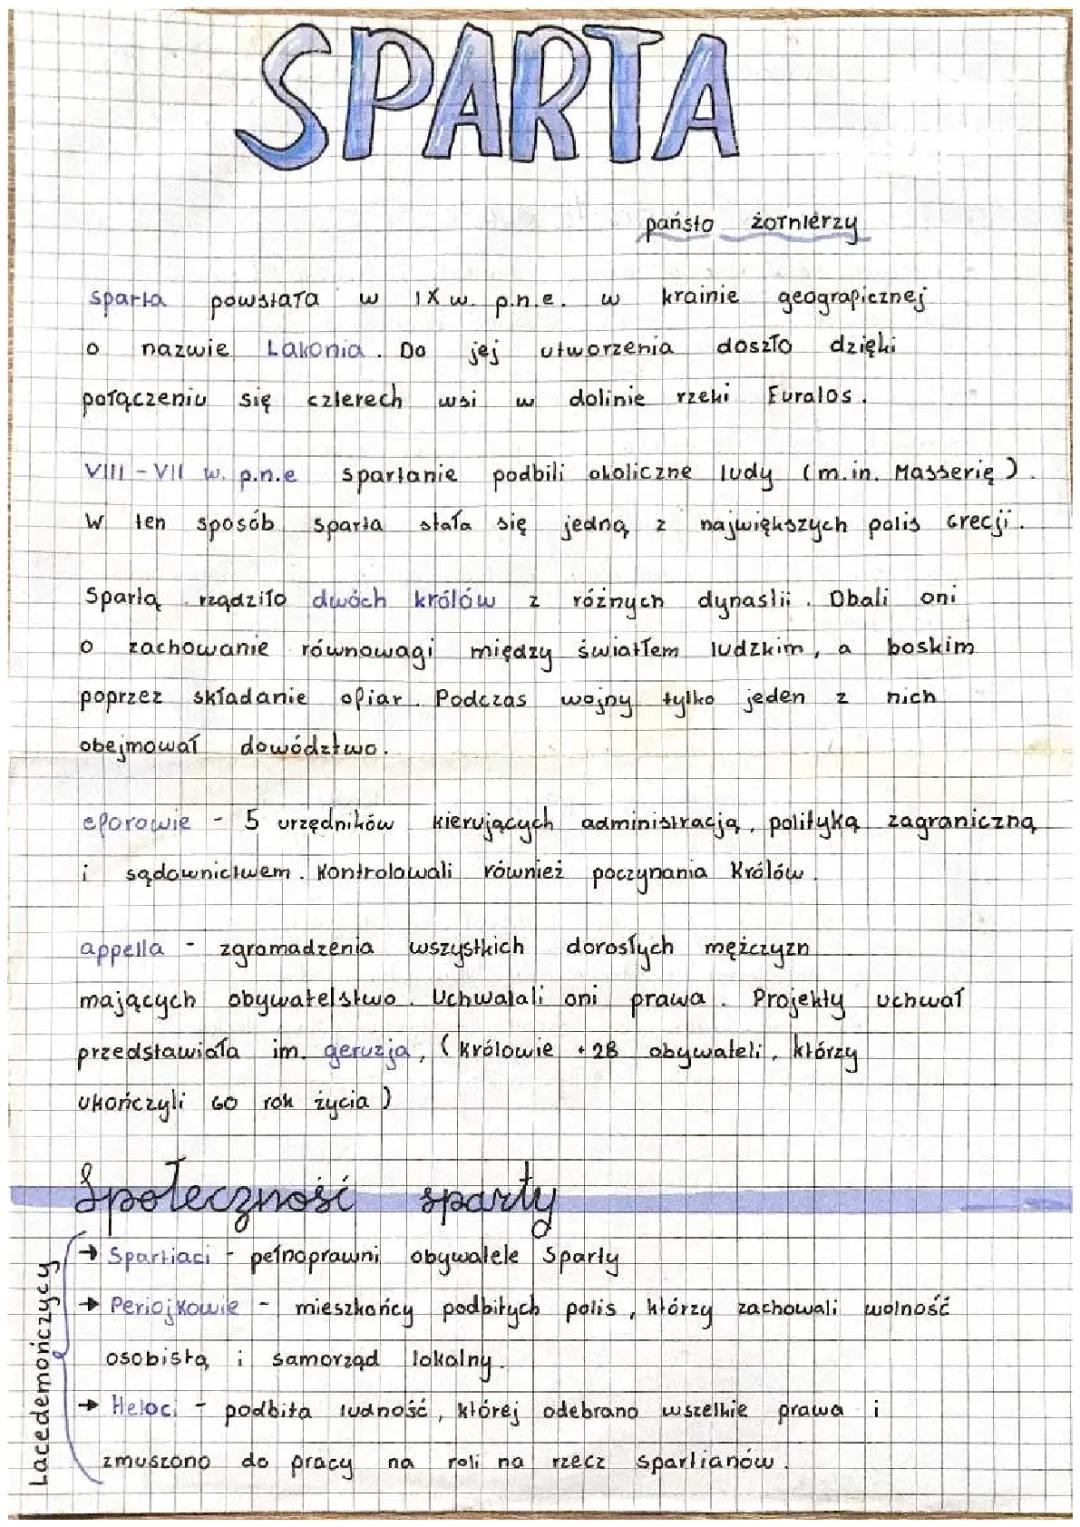 SPARTA
państo żołnierzy
sparta powstała w IX w. p.n.e. w krainie geograpicznej
o nazwie Lakonia. Do jej utworzenia doszło dzięki
połączeniu się czterech wsi w dolinie rzeki Euralos.
VIII-VII w. p.n.e spartanie podbili okoliczne ludy (m.in. Masserię).
W ten sposób sparta stała się jedną z największych polis Grecji.
Spartą rządziło dwóch królów z różnych dynastii. Dbali oni
o zachowanie równowagi między światłem ludzkim, a boskim
poprzez składanie ofiar. Podczas wojny tylko jeden z nich
obejmował dowództwo.
eforowie - 5 urzędników kierujących administracją, polityką zagraniczną
i sądownictwem. Kontrolowali również poczynania Królów.
appella - zgromadzenia wszystkich dorosłych mężczyzn
mających obywatelstwo. Uchwalali oni prawa. Projekty uchwał
przedstawiała im. geruzja, (królowie +28 obywateli, którzy
ukończyli 60 rok życia)
Społeczność sparty
Lacedemończycy
→ Spartiaci - pełnoprawni obywatele Sparty
→ Periojkowie - mieszkańcy podbitych polis, którzy zachowali wolność
osobistą i samorząd lokalny.
→ Heloci - podbita ludność, której odebrano wszelkie prawa i
zmuszono do pracy na roli na rzecz spartianów.